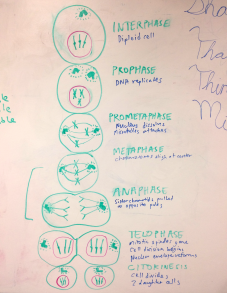 INTERPHASE
Diploid cell
PROPHASE
DNA replicates
PROMETAPHASE
Nucleus dissolves
microtubles attach
METAPHASE
chromosomes align at center
ANAPHASE
Sister chromatids pulled
to opposite poles
TELOPHASE
mitotic spindles gone
Cell division begins
Nuclear envelope reforms
CITOKINECIS
cell divides
2 daughter cells
Sha
Tha
Thu
Mi